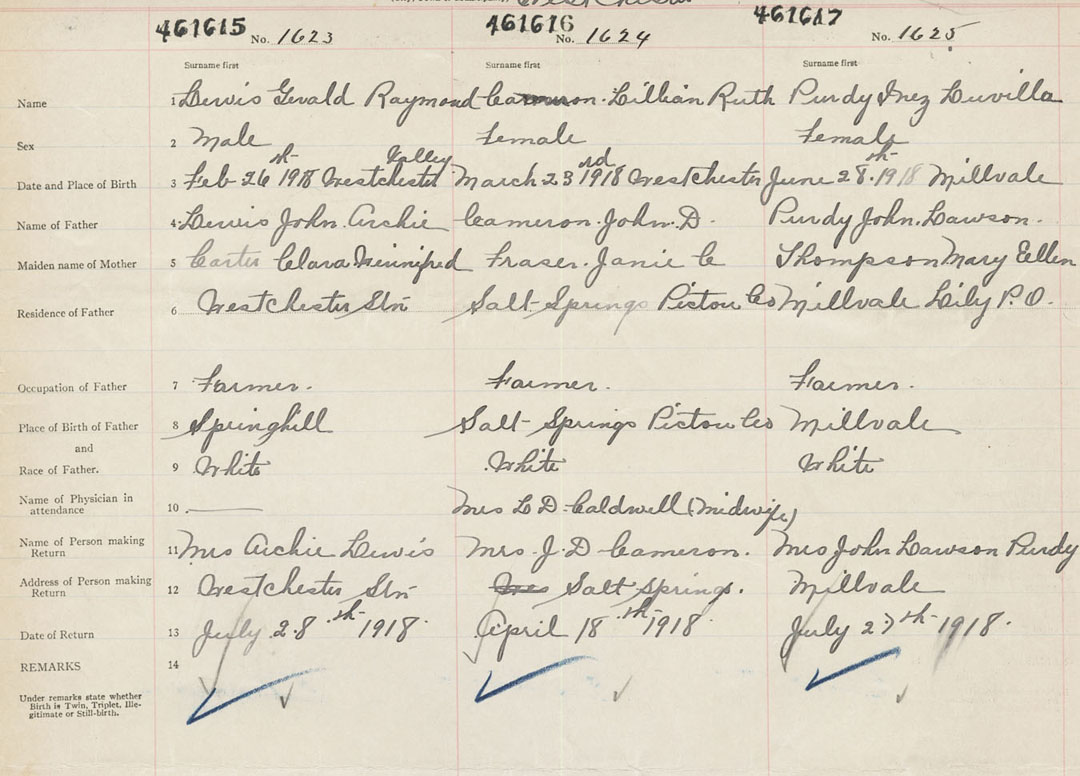 461615 461616 461617
No. 1623 No. 1624 No. 1625
Surname first Surname first Surname first
Name 1 Lewis Gerald Raymond Cameron. Lillian Ruth Purdy Inez Luvilla
Sex 2 Male Female Female
Date and Place of Birth 3 Feb 26th 1918 Westchester Valley March 23rd 1918 Westchester June 28th 1918 Millvale
Name of Father 4 Lewis John Archie Cameron. John. D. Purdy John. Lawson.
Maiden name of Mother 5 Carter Clara Winnifred Fraser. Janie C Thompson Mary Ellen
Residence of Father 6 Westchester Stn Salt Springs Pictou Co Millvale Lily P.O.
Occupation of Father 7 Farmer. Farmer. Farmer.
Place of Birth of Father 8 Springhill Salt Springs Pictou Co Millvale
and
Race of Father. 9 White White White
Name of Physician in
attendance 10 Mrs L D Caldwell (Midwife)
Name of Person making
Return 11 Mrs Archie Lewis Mrs. J. D. Cameron. Mrs John Lawson Purdy
Address of Person making
Return 12 Westchester Stn Salt Springs. Millvale
Date of Return 13 July 28th 1918. April 18th 1918. July 27th 1918.
REMARKS 14
Under remarks state whether
Birth is Twin, Triplet, Ille-
gitimate or Still-birth.